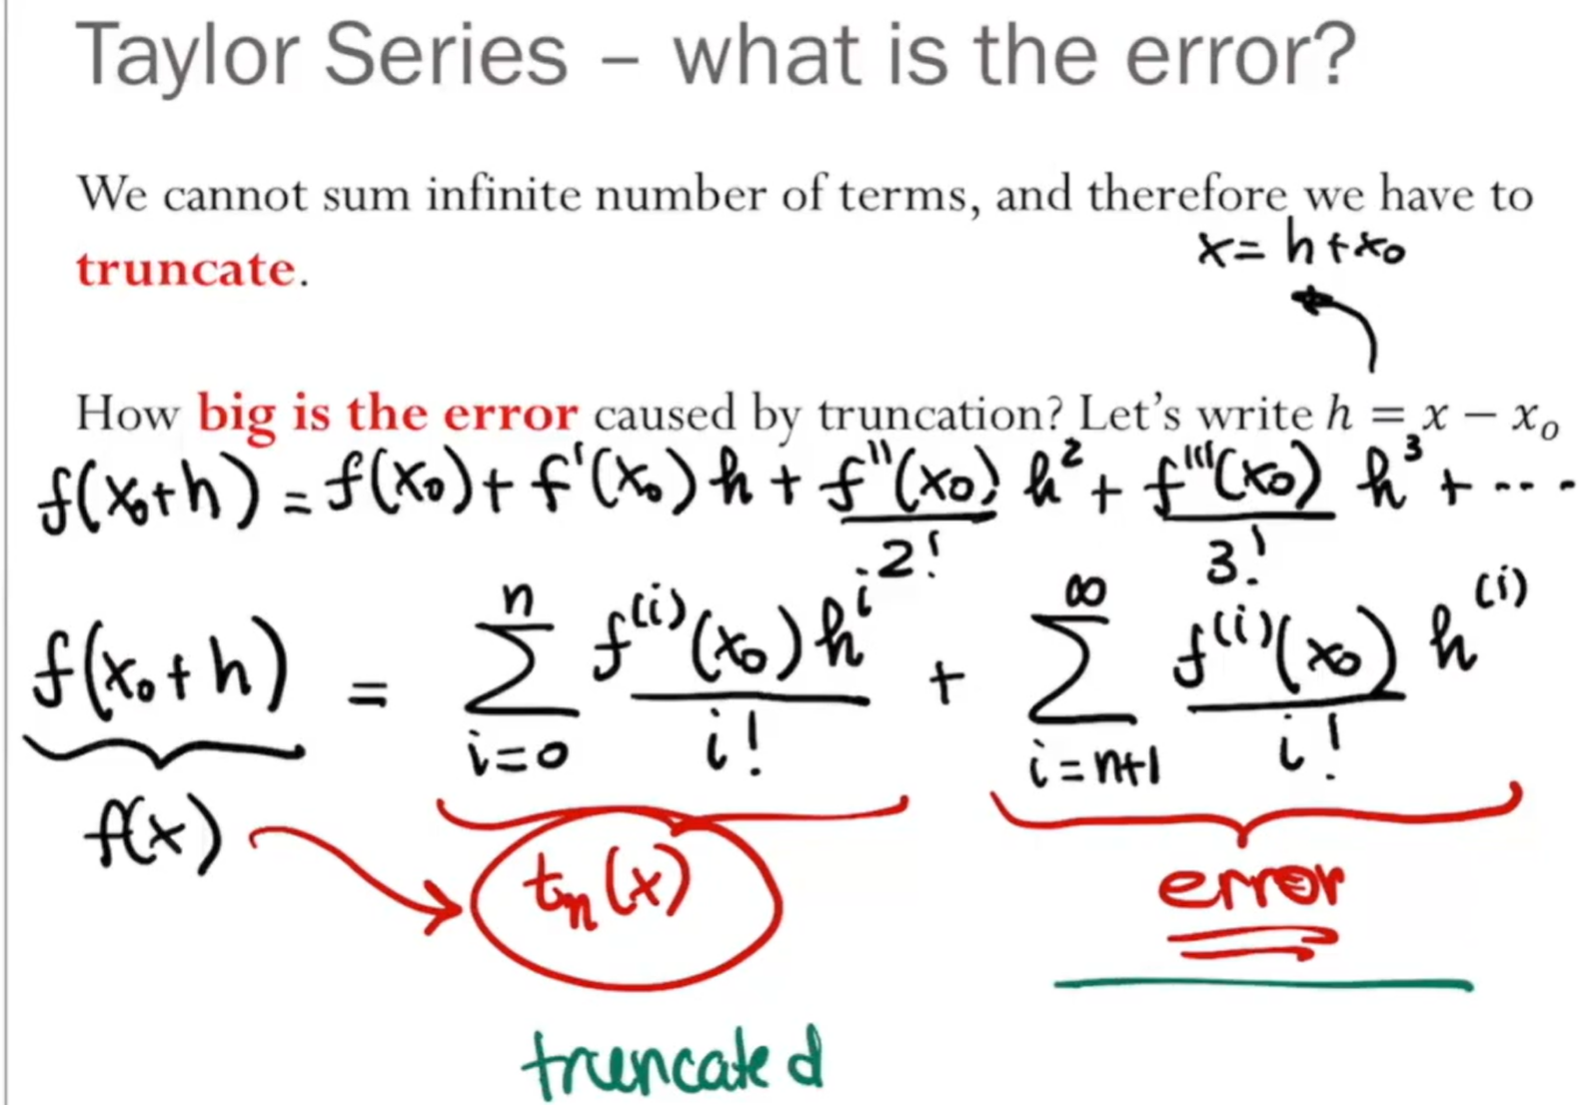 Taylor Series – what is the error?
We cannot sum infinite number of terms, and therefore we have to
truncate.
x = h + x₀
How big is the error caused by truncation? Let's write h = x − xₒ
f(x₀+h) = f(x₀) + f'(x₀) h + f''(x₀)/2! h² + f'''(x₀)/3! h³ + ...
f(x₀+h) = ∑_{i=0}^{n} f^{(i)}(x₀) h^i / i! + ∑_{i=n+1}^{∞} f^{(i)}(x₀)/i! h^{(i)}
f(x) tₙ(x) error
truncated